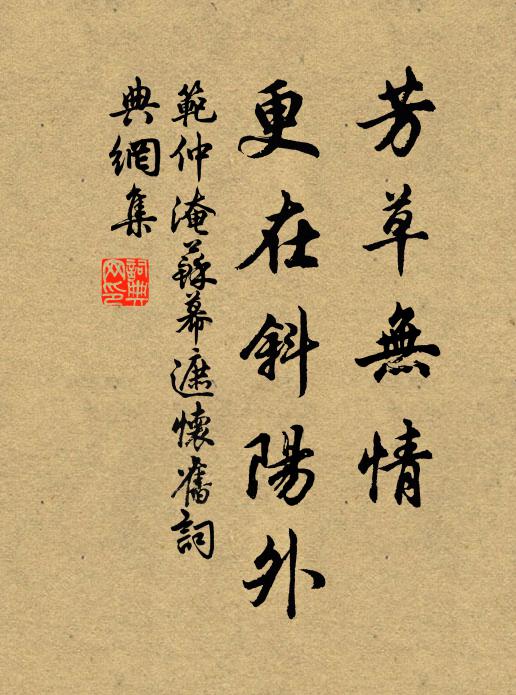 芳草無情
更在斜陽外
範仲淹蘇幕遮懷舊詞
典網集
詞典网印